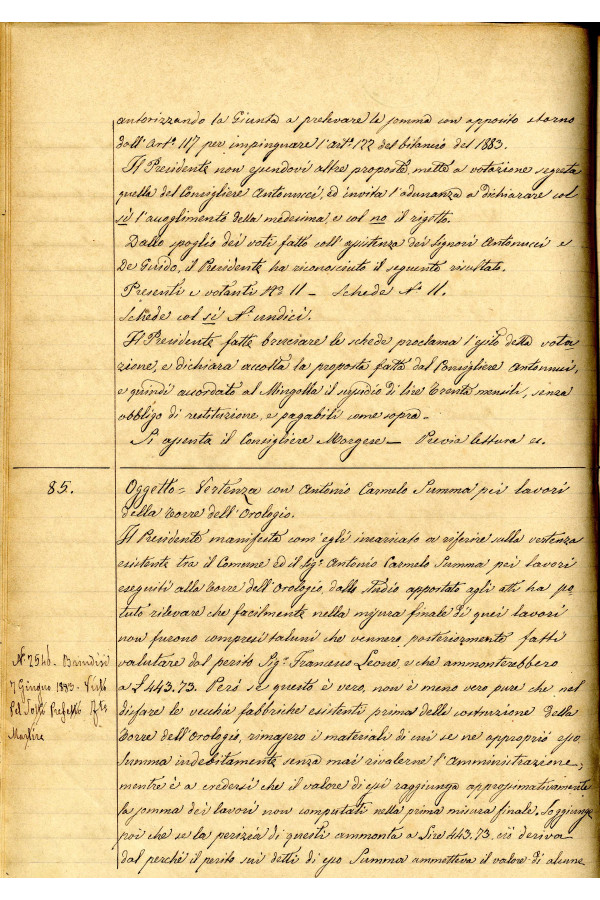 autorizzando la Giunta a prelevare la somma con apposito storno
dall'Art.o 117 per impinguare l'art.o 122 del bilancio del 1883.
Il Presidente non essendovi altre proposte, mette a votazione segreta
quella del Consigliere Antonucci, ed invita l'adunanza a dichiarare col
sì l'accoglimento della medesima, e col no il rigetto.
Dallo spoglio dei voti fatto coll'assistenza dei Signori Antonucci e
De Guido, il Presidente ha riconosciuto il seguente risultato.
Presenti e votanti No 11 _ Schede No 11.
Schede col sì No undici.
Il Presidente fatte bruciare le schede proclama l'esito della vota
zione, e dichiara accolta la proposta fatta dal Consigliere Antonucci,
e quindi accordato al Mingolla il sussidio di lire Trenta mensili, senza
obbligo di restituzione, e pagabili come sopra _
Si assenta il Consigliere Morgese _ Previa lettura ec.
85.
Oggetto = Vertenza con Antonio Carmelo Summa pei lavori
della Torre dell'Orologio.
Il Presidente manifesta com'egli incaricato a riferire sulla vertenza
esistente tra il Comune ed il Sig.r Antonio Carmelo Summa pei lavori
eseguiti alla Torre dell'Orologio, dallo studio apportato agli atti ha po
tuto rilevare che facilmente nella misura finale di quei lavori
non furono compresi taluni che vennero posteriormente fatti
valutare dal perito Sig.r Francesco Leone, e che ammonterebbero
a £ 443.73. Però se questo è vero, non è meno vero pure che nel
disfare le vecchie fabbriche esistenti prima della costruzione della
Torre dell'Orologio, rimasero i materiali di cui se ne appropriò esso
Summa indebitamente senza mai rivalerne l'Amministrazione,
mentre è a credersi che il valore di essi raggiunga approssimativamente
la somma dei lavori non computati nella prima misura finale. Soggiunge
poi che se la perizia di questi ammonta a Lire 443.73, ciò deriva
dal perché il perito sui detti di esso Summa ammetteva il valore di alcune
No 2546 - Brindisi
7 Giugno 1883 - Visto
Pel Sotto Prefetto
Martire